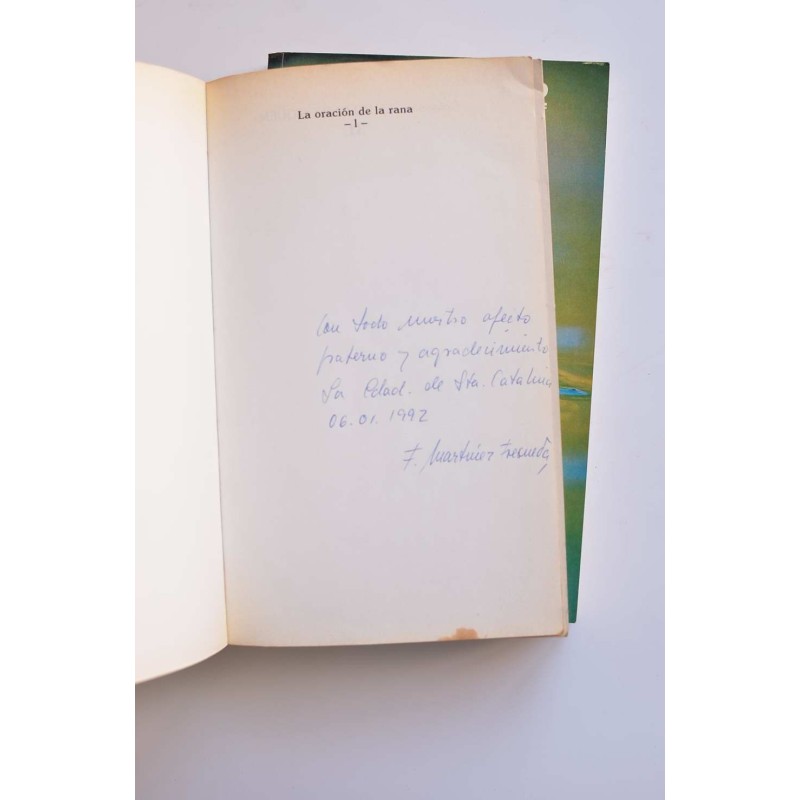 La oración de la rana
– I –
Con todo nuestro afecto
fraterno y agradecimiento
La Cdad. de Sta. Catalina
06.01.1992
F. Martínez Fresneda